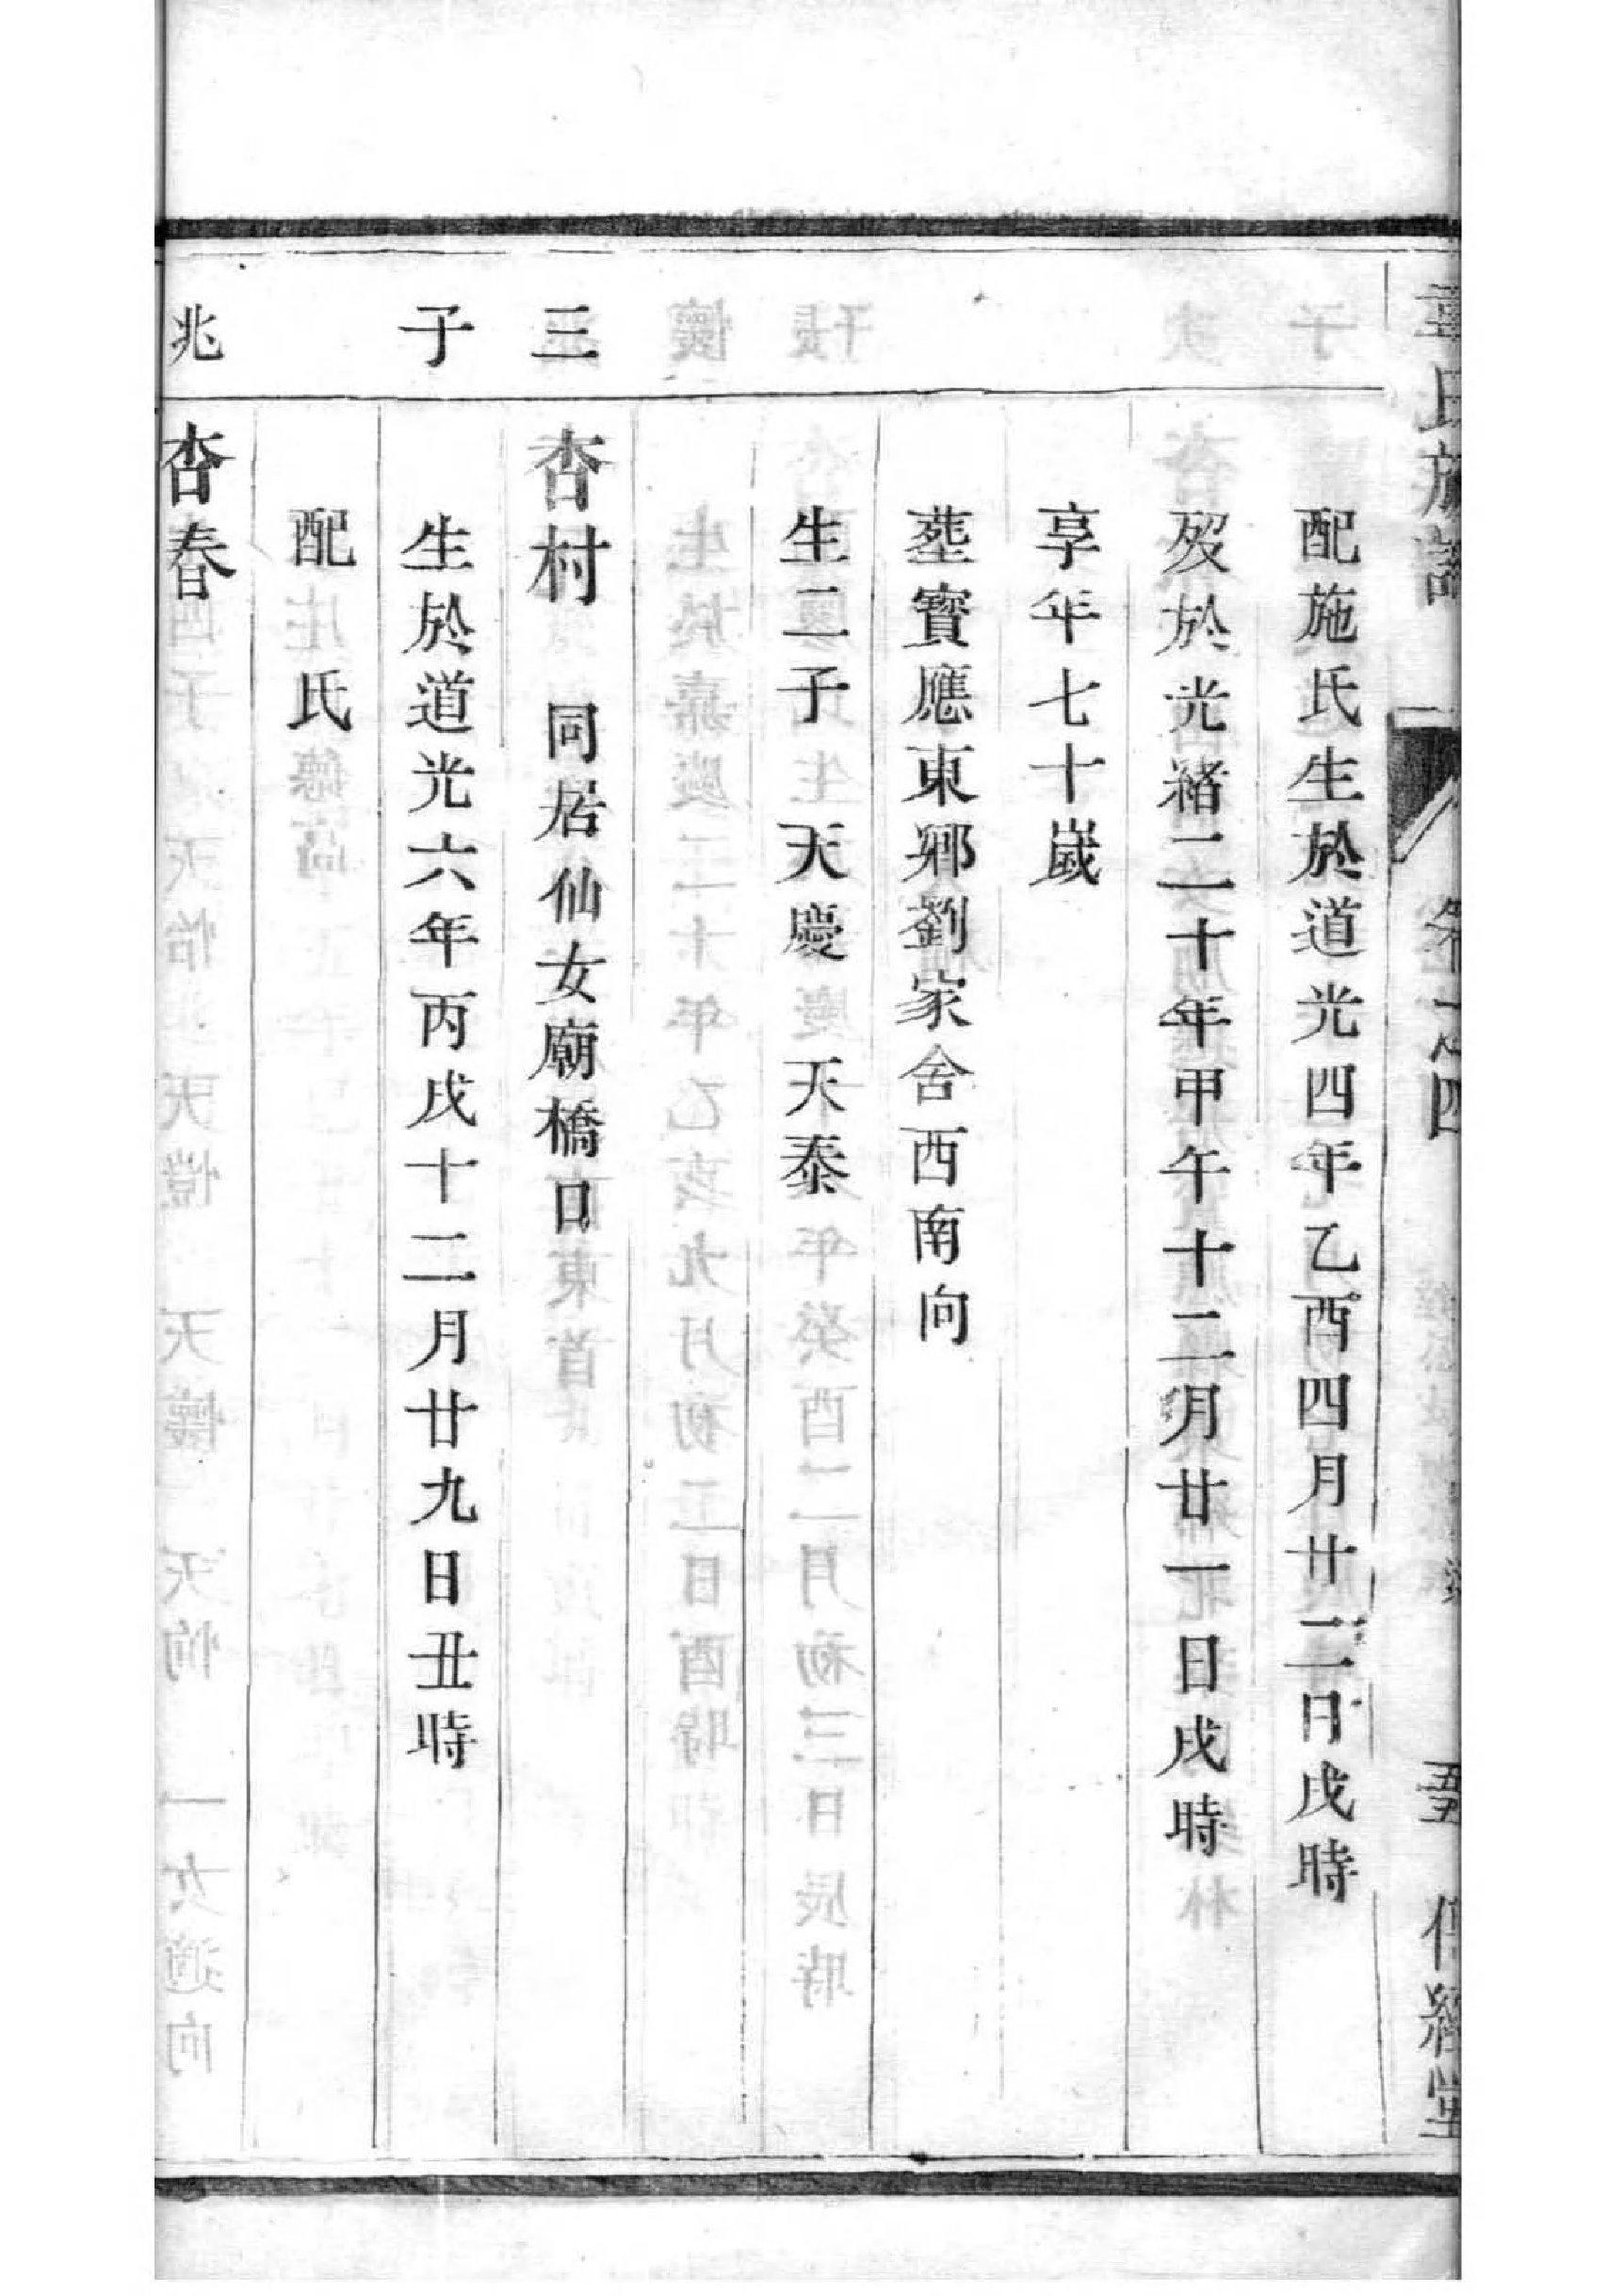 氏族譜
卷之四
五
傳經堂
配施氏生於道光四年乙酉四月廿二日戌時
歿於光緒二十年甲午十二月廿一日戌時
享年七十歲
葬寶應東鄉劉家舍西南向
生二子天慶 天泰
三
杏村 同居仙女廟橋口
子
生於道光六年丙戌十二月廿九日丑時
配 氏
兆
杏春